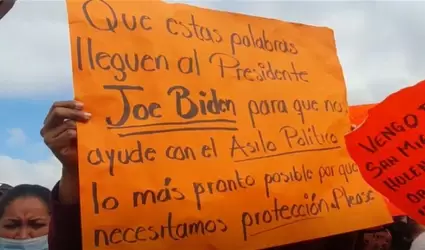 Que estas palabras
lleguen al Presidente
Joe Biden para que nos
ayude con el Asilo Politico
lo más pronto posible por que
necesitamos protección. Please
VENGO D
SAN MI